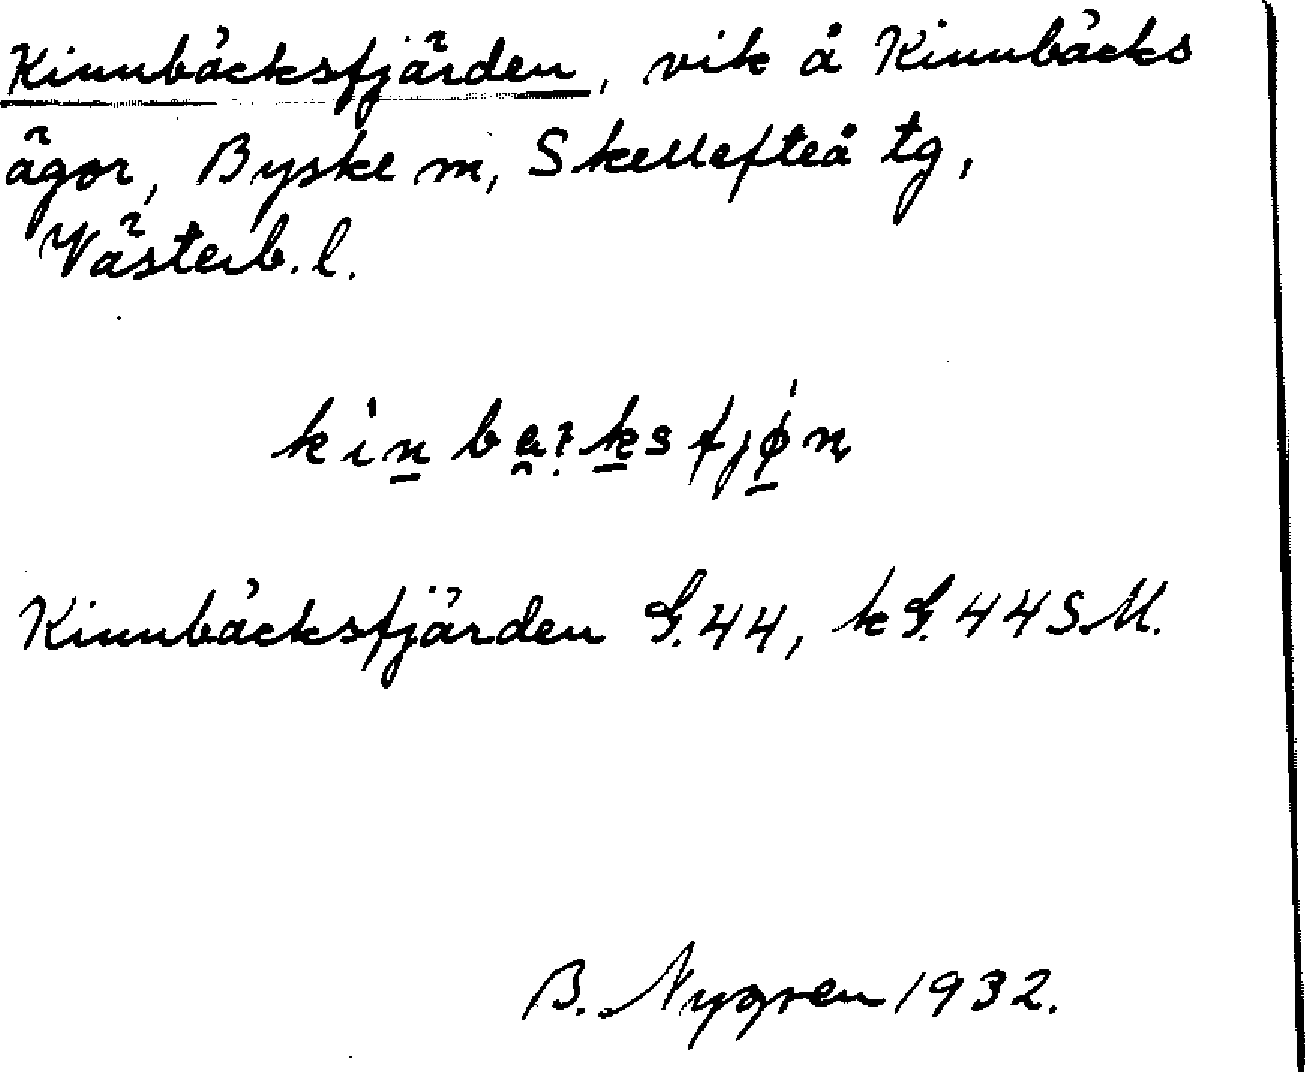 Kinnbäcksfjärden, vik å Kinnbäcks
ägor, Byske m, Skellefteå tg,
Västerb. l.
Kinnbäcksfjärden G.44, kG.44 S.M.
B. Nygren 1932.